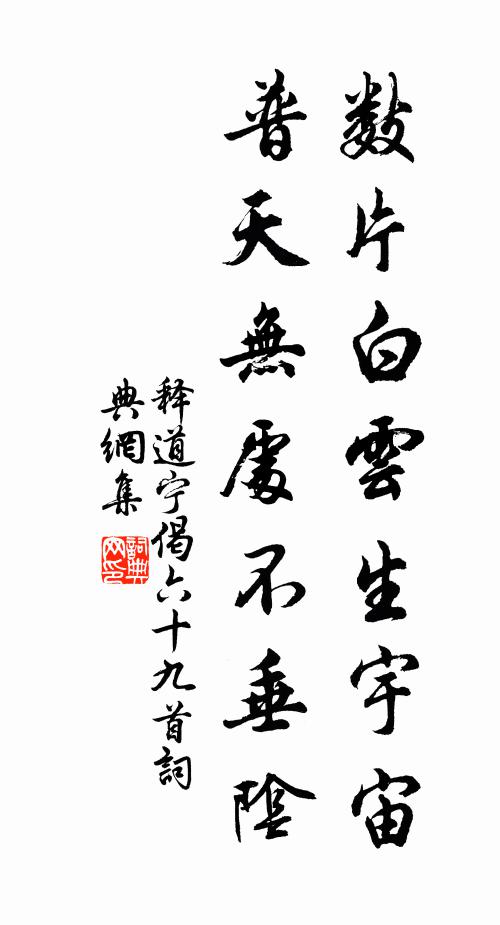 数片白雲生宇宙
普天無處不垂陰
释道宁偈六十九首詞
典網集
詞典网印